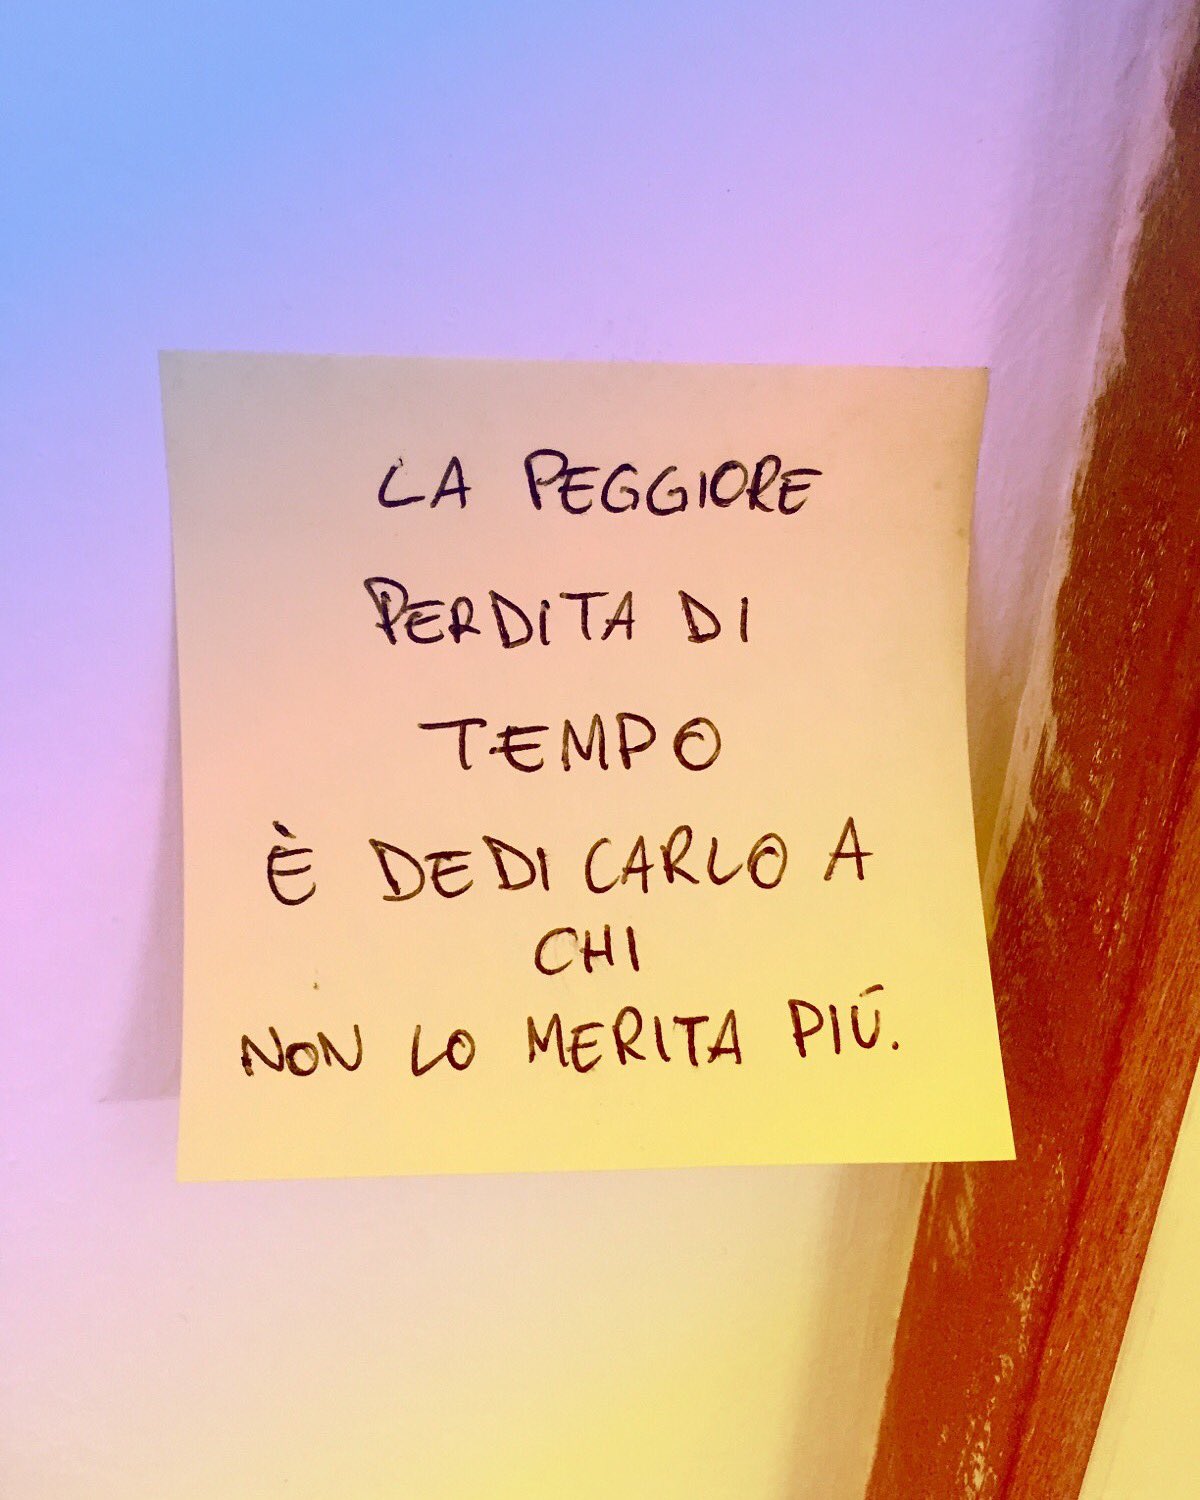 LA PEGGIORE
PERDITA DI
TEMPO
È DEDICARLO A
CHI
NON LO MERITA PIÚ.